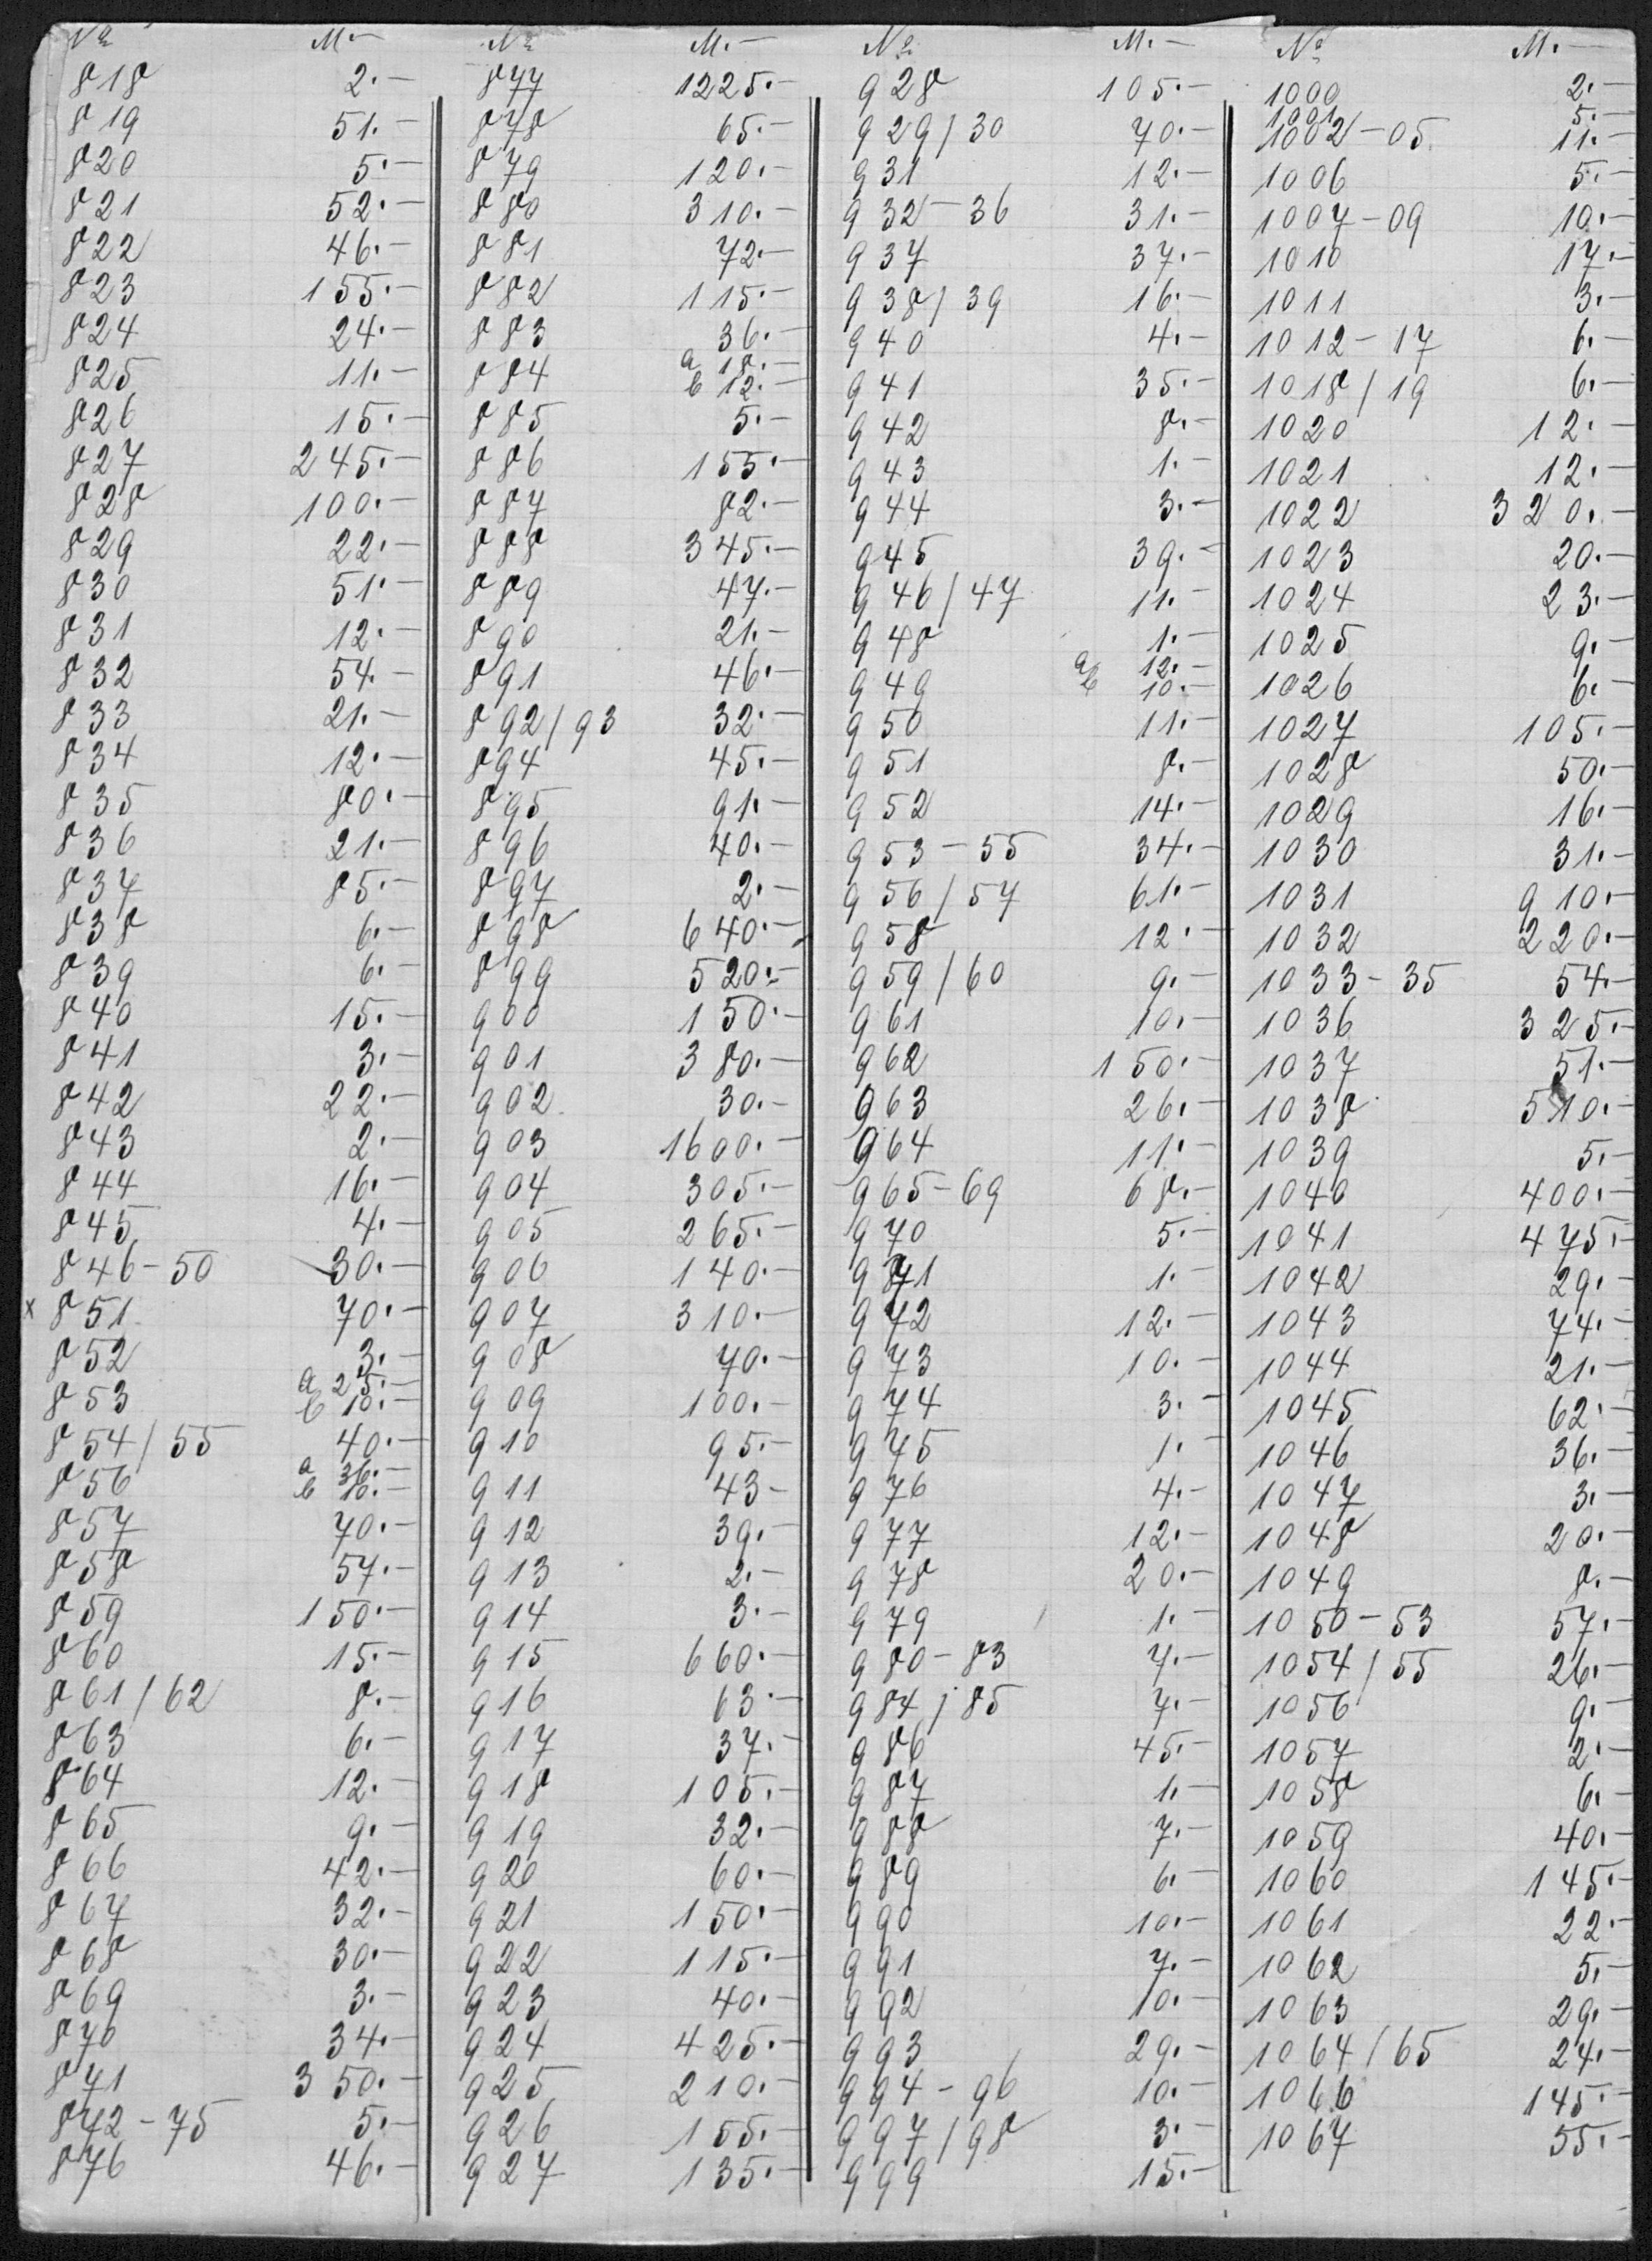 № M.—
818 2.—
819 51.—
820 5.—
821 52.—
822 46.—
823 155.—
824 24.—
825 11.—
826 15.—
827 245.—
828 100.—
829 22.—
830 51.—
831 12.—
832 54.—
833 21.—
834 12.—
835 80.—
836 21.—
837 85.—
838 6.—
839 6.—
840 15.—
841 3.—
842 22.—
843 2.—
844 16.—
845 4.—
846-50 30.—
x 851 70.—
852 3.—
853 a 25.—
b 10.—
854/55 40.—
856 a 36.—
b 10.—
857 70.—
858 57.—
859 150.—
860 15.—
861/62 8.—
863 6.—
864 12.—
865 9.—
866 42.—
867 32.—
868 30.—
869 3.—
870 34.—
871 350.—
872-75 5.—
876 46.—
№ M.—
877 1225.—
878 65.—
879 120.—
880 310.—
881 72.—
882 115.—
883 36.—
884 a 18.—
b 12.—
885 5.—
886 155.—
887 82.—
888 345.—
889 47.—
890 21.—
891 46.—
892/93 32.—
894 45.—
895 91.—
896 40.—
897 2.—
898 640.—
899 520.—
900 150.—
901 380.—
902 30.—
903 1600.—
904 305.—
905 265.—
906 140.—
907 310.—
908 70.—
909 100.—
910 95.—
911 43-
912 39.—
913 2.—
914 3.—
915 660.—
916 63.—
917 37.—
918 105.—
919 32.—
920 60.—
921 150.—
922 115.—
923 40.—
924 425.—
925 210.—
926 155.—
927 135.—
№ M.—
928 105.—
929/30 70.—
931 12.—
932-36 31.—
937 37.—
938/39 16.—
940 4.—
941 35.—
942 8.—
943 1.—
944 3.—
945 39.—
946/47 11.—
948 1.—
949 a 12.—
b 10.—
950 11.—
951 8.—
952 14.—
953-55 34.—
956/57 61.—
958 12.—
959/60 9.—
961 10.—
962 150.—
963 26.—
964 11.—
965-69 68.—
970 5.—
971 1.—
972 12.—
973 10.—
974 3.—
975 1.—
976 4.—
977 12.—
978 20.—
979 1.—
980-83 7.—
984/85 7.—
986 45.—
987 1.—
988 7.—
989 6.—
990 10.—
991 7.—
992 10.—
993 29.—
994-96 10.—
997/98 3.—
999 15.—
№ M.—
1000 2.—
1001 5.—
1002-05 11.—
1006 5.—
1007-09 10.—
1010 17.—
1011 3.—
1012-17 6.—
1018/19 6.—
1020 12.—
1021 12.—
1022 320.—
1023 20.—
1024 23.—
1025 9.—
1026 6.—
1027 105.—
1028 50.—
1029 16.—
1030 31.—
1031 910.—
1032 220.—
1033-35 54.—
1036 325.—
1037 51.—
1038 510.—
1039 5.—
1040 400.—
1041 475.—
1042 29.—
1043 74.—
1044 21.—
1045 62.—
1046 36.—
1047 3.—
1048 20.—
1049 8.—
1050-53 57.—
1054/55 26.—
1056 9.—
1057 2.—
1058 6.—
1059 40.—
1060 145.—
1061 22.—
1062 5.—
1063 29.—
1064/65 24.—
1066 145.—
1067 55.—